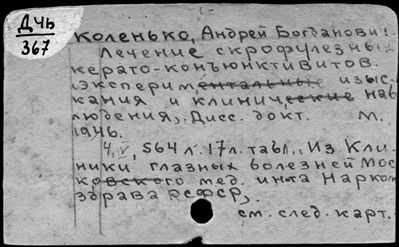 Дчь
367
Коленько, Андрей Богданович.
Лечение скрофулезных
керато-конъюнктивитов.
(Экспериментальные изыс-
кания и клинические наб
людения). Дисс. докт. М.
1946.
564 л. 17 л. табл. Из Кли-
ники глазных болезней Мос
ковского мед. ин-та Нарком
здрава РСФСР).
см. след. карт.